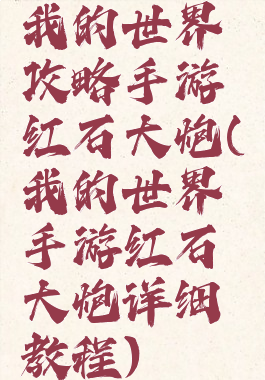 我的世界
攻略手游
红石大炮(
我的世界
手游红石
大炮详细
教程)